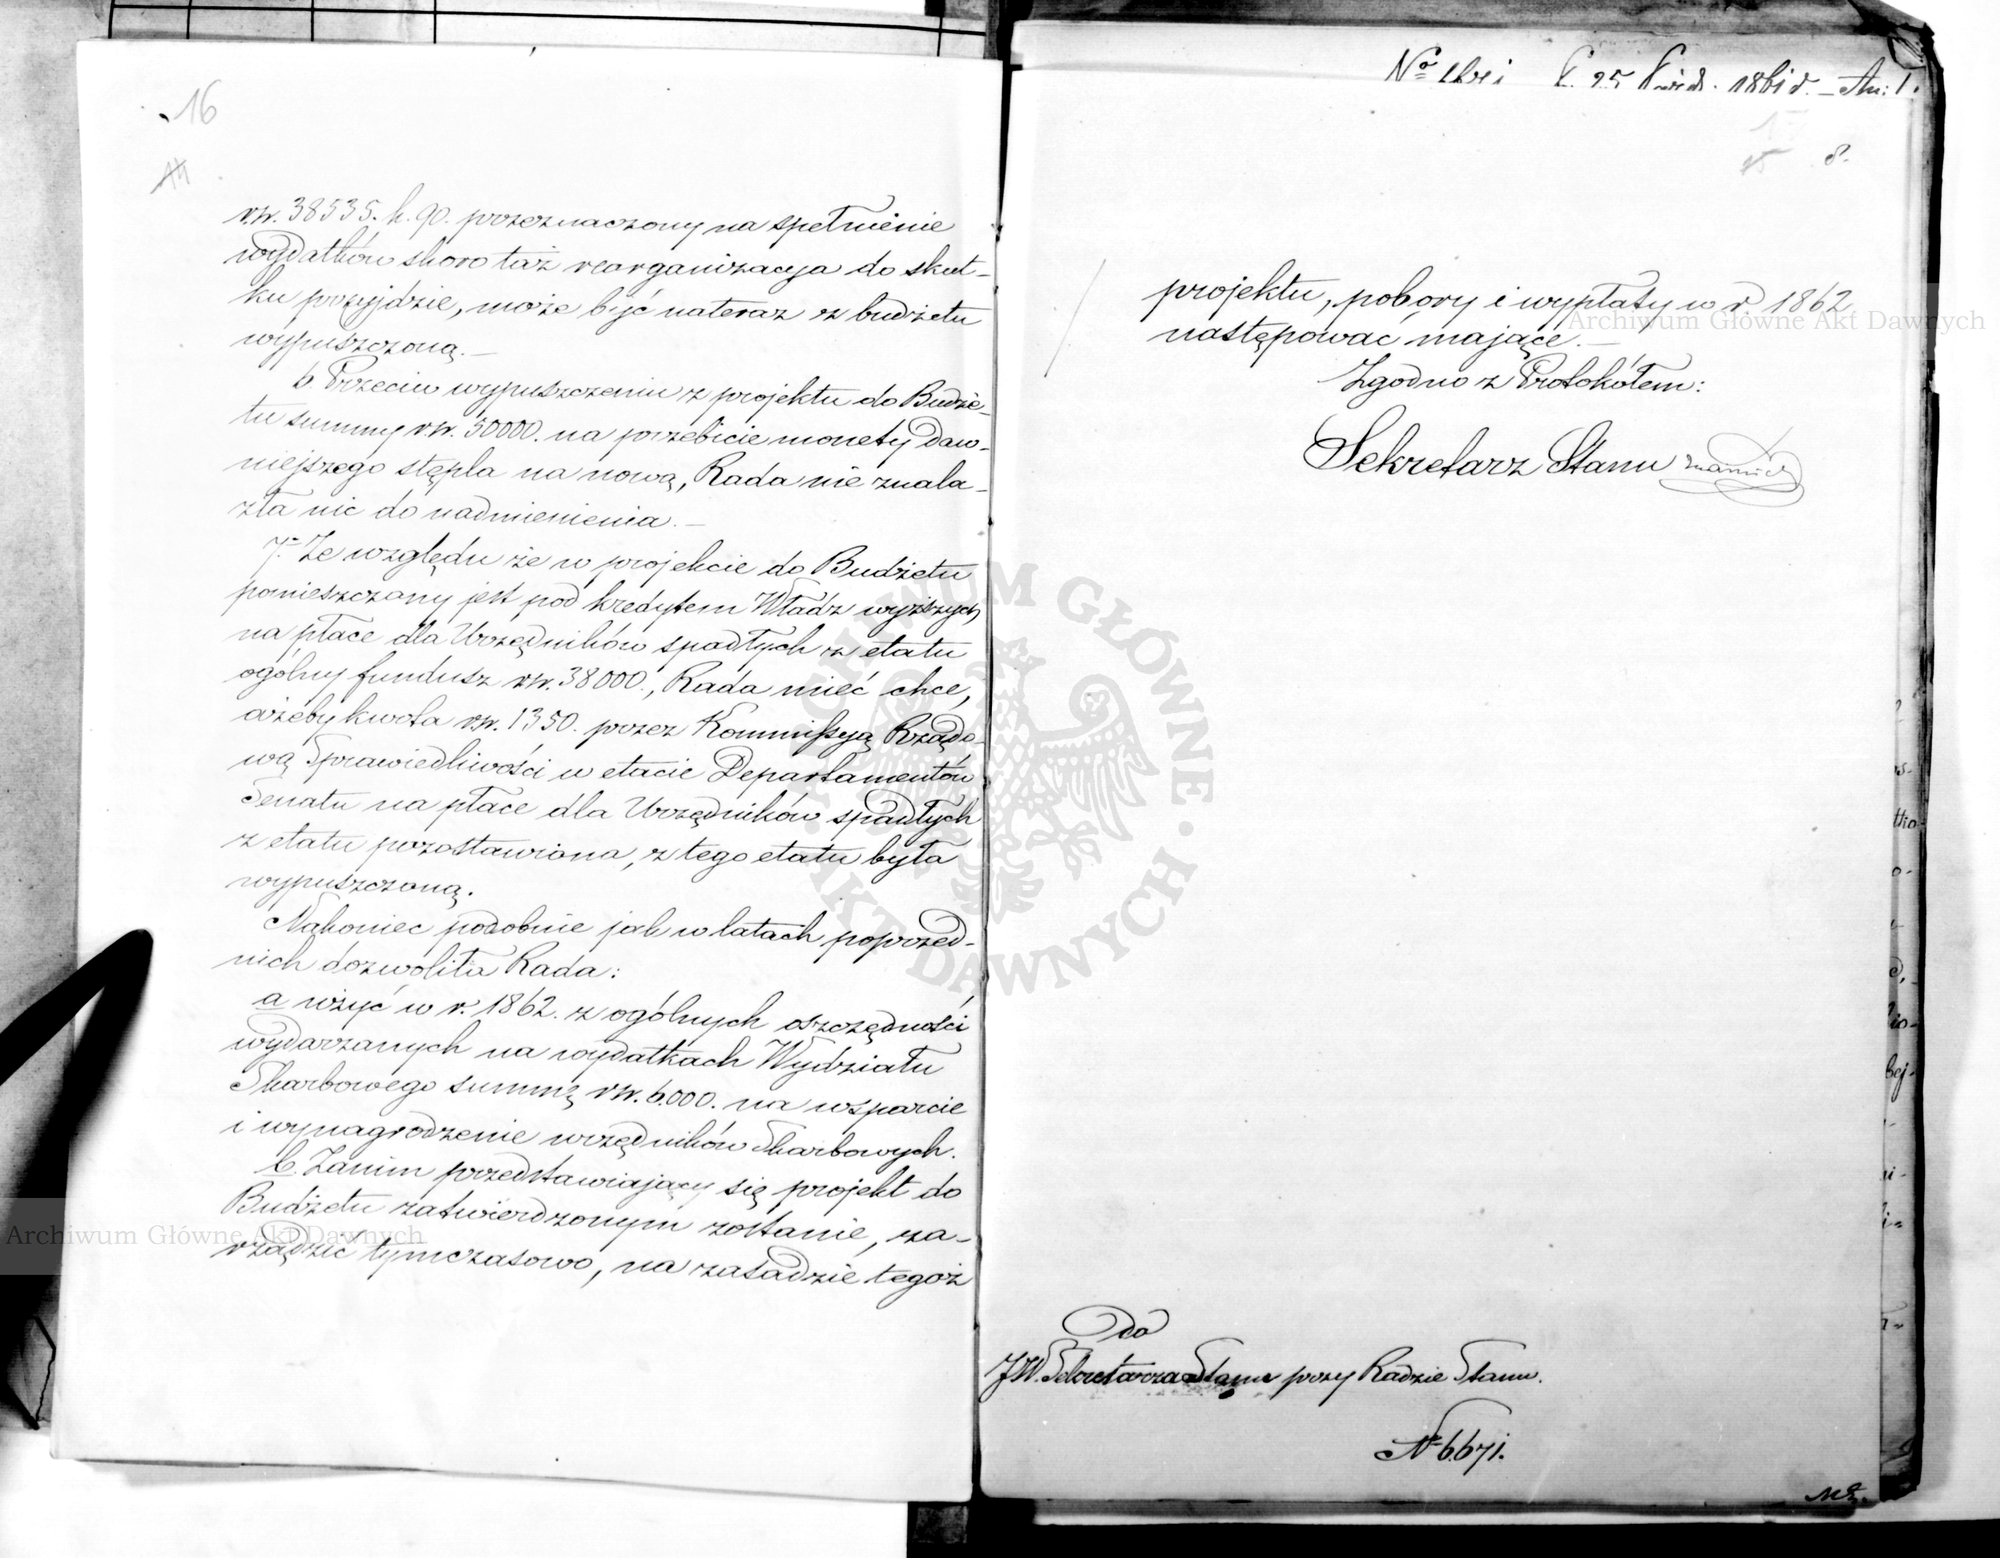 16
rsr. 38535. k. 90. przeznaczony na spełnienie
wydatków skoro taż reorganizacya do skut-
ku przyjdzie, może być nateraz z budżetu
wypuszczoną.—
6. Przeciw wypuszczeniu z projektu do Budże-
tu summy rsr. 50000. na przebicie monety daw-
niejszego stępla na nową, Rada nie znala-
zła nic do nadmienienia.—
7. Ze względu że w projekcie do Budżetu
pomieszczony jest pod kredytem Władz wyższych
na płace dla Urzędników spadłych z etatu
ogólny fundusz rsr. 38000., Rada mieć chce,
ażeby kwota rsr. 1350. przez Kommissyą Rządo-
wą Sprawiedliwości w etacie Departamentów
Senatu na płace dla Urzędników spadłych
z etatu pozostawiona, z tego etatu była
wypuszczoną.
Nakoniec podobnie jak w latach poprzed-
nich dozwoliła Rada:
a użyć w r. 1862. z ogólnych oszczędności
wydarzanych na wydatkach Wydziału
Skarbowego summę rsr. 6.000. na wsparcie
i wynagrodzenie urzędników Skarbowych.
b. Zanim przedstawiający się projekt do
Budżetu zatwierdzonym zostanie, za-
rządzić tymczasowo, na zasadzie tegoż
25 1861 r.
8.
projektu, pobory i wypłaty w r. 1862
następować mające.—
Zgodno z Protokółem:
Sekretarz Stanu
Do
JW. Sekretarza Stanu przy Radzie Stanu.
№ 6671.
Archiwum Główne Akt Dawnych
ARCHIWUM GŁÓWNE · AKT DAWNYCH ·
Archiwum Główne Akt Dawnych